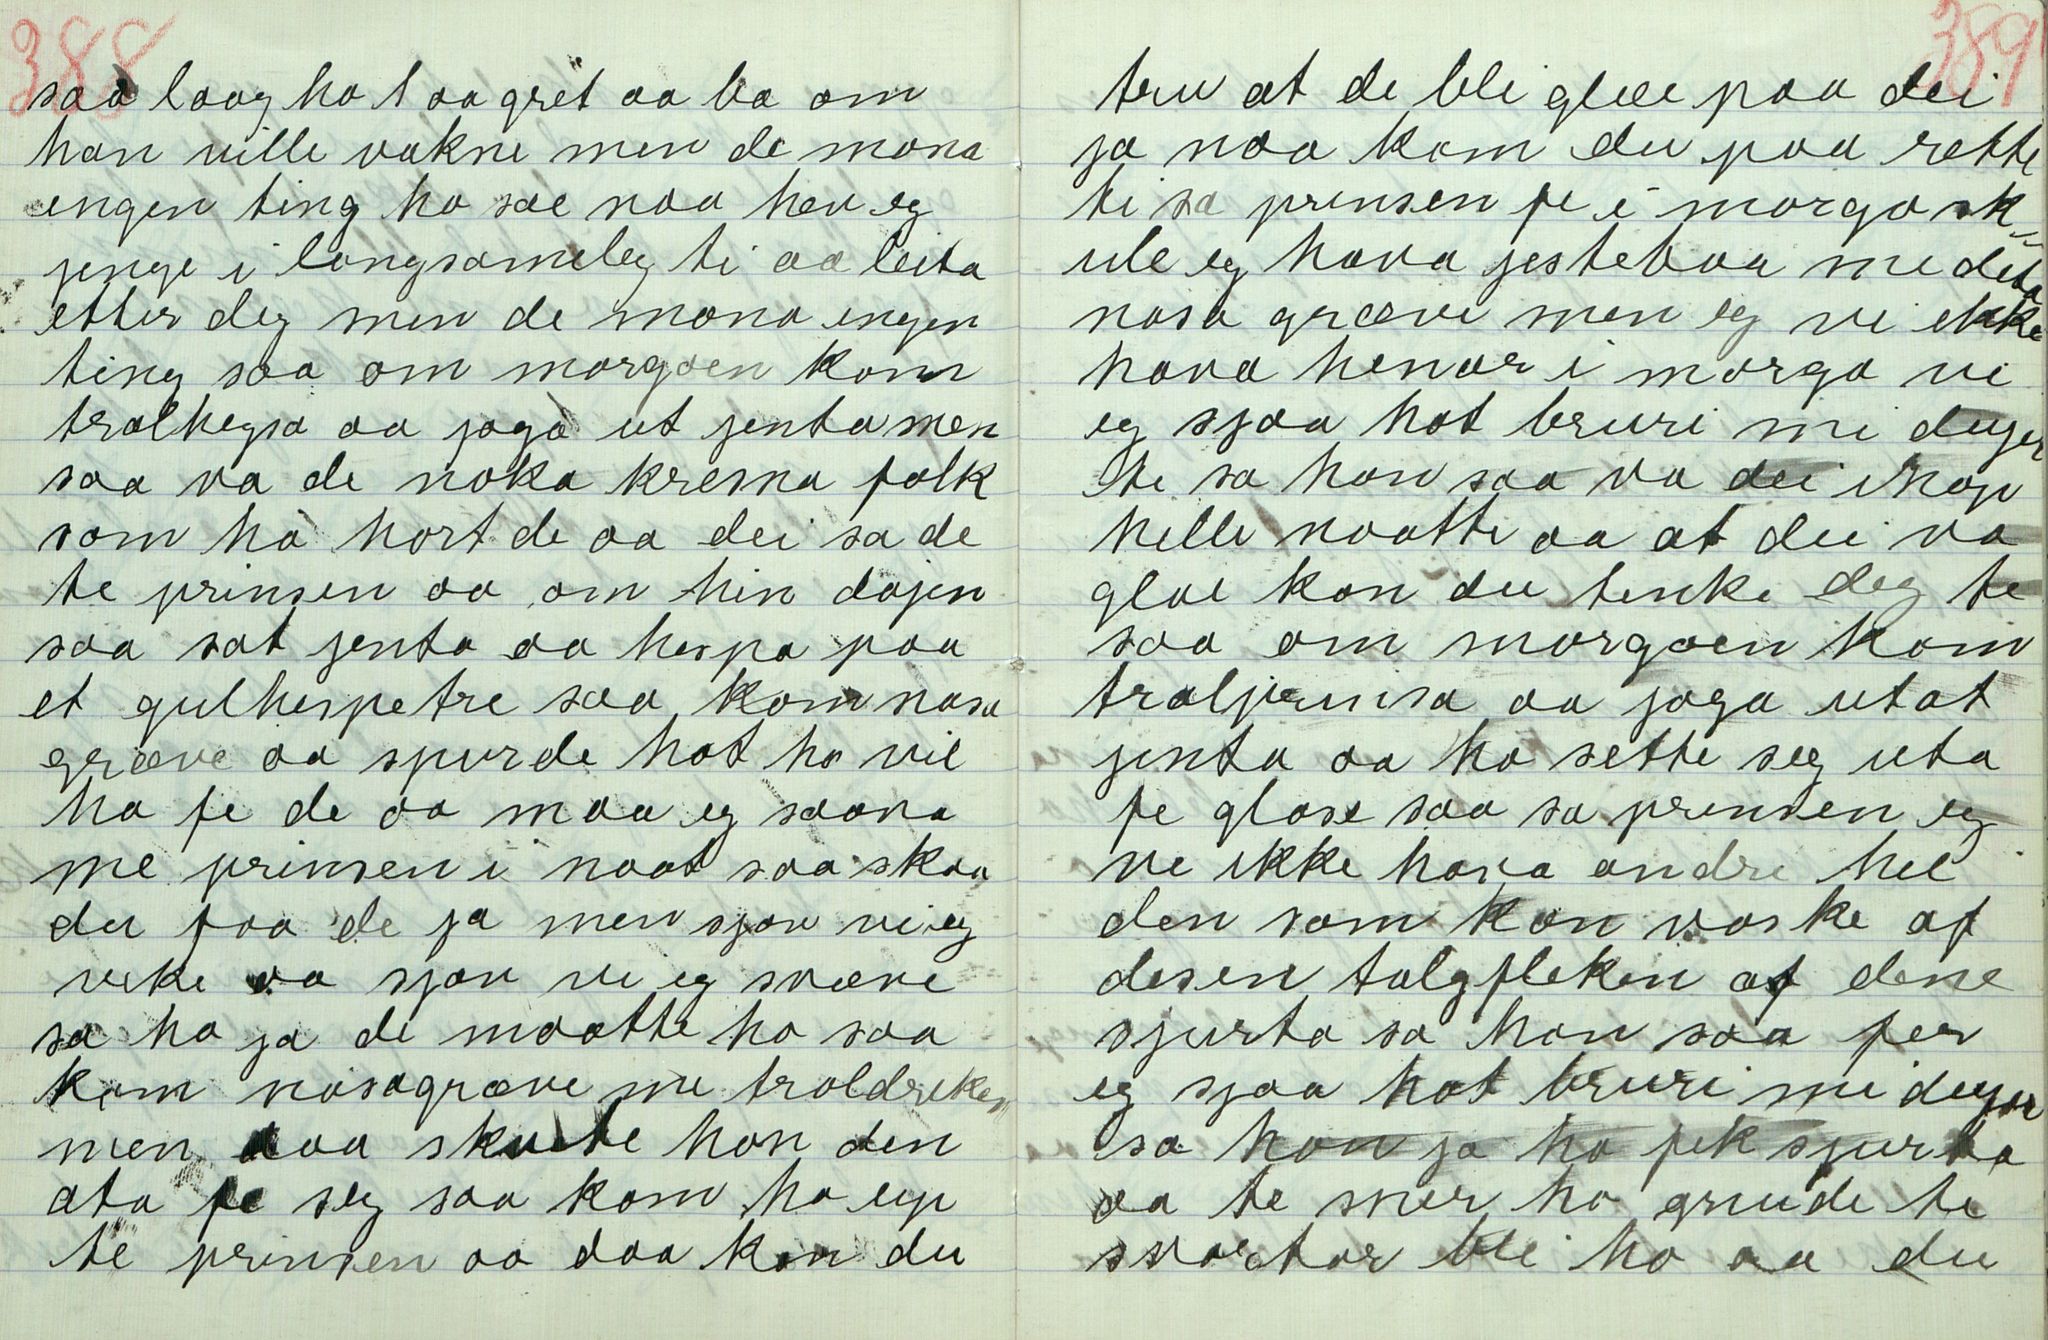 388
saa laag ho laa gret aa ba om
han ville vakne men de mona
engen ting ho sae naa hev eg
jenge i langsameleg ti aa leita
etter deg men de mona engen
ting saa om morgaen kom
trolhegsa aa joga ut jenta men
saa va de noka kresna folk
som ha hort de aa dei sa de
te prinsen aa om hin dajen
saa sat jenta aa hespa paa
et gulhespetre saa kom nasa
græve aa spurde hot ho vil
ha fe de aa maa eg saava
me prinsen i naat saa skaa
du faa de ja men sjøv vi eg
veke aa sjøv vi eg svæve
sa ho ja de maatte ho saa
kom nasagræve me troldreken
men daa skvette han den
ata fe seg saa kom ho up
te prinsen aa daa kan du
389
tru at de blei glæe paa dei
ja naa kom du paa rette
ti sa prinsen fe i morga sk=
ule eg hava jestebaa me deta
nasa græve men eg vi ekke
hava henar i morga vi
eg sjaa hot bruri mi duger
te sa han saa va dei ihop
helle naatte aa at dei va
glae kan du tenke deg te
saa om morgaen kom
trolprinsa aa joga utat
jenta aa ho sette seg uta
fe glase saa sa prinsen eg
ve ikke hava andre hel
den som kan vaske af
desen talgfleken af dene
sjurta sa han saa fer
eg sjaa hot bruri mi duger
sa han ja ho fek sjurta
aa te mer ho gnude te
svartar blei ho aa du